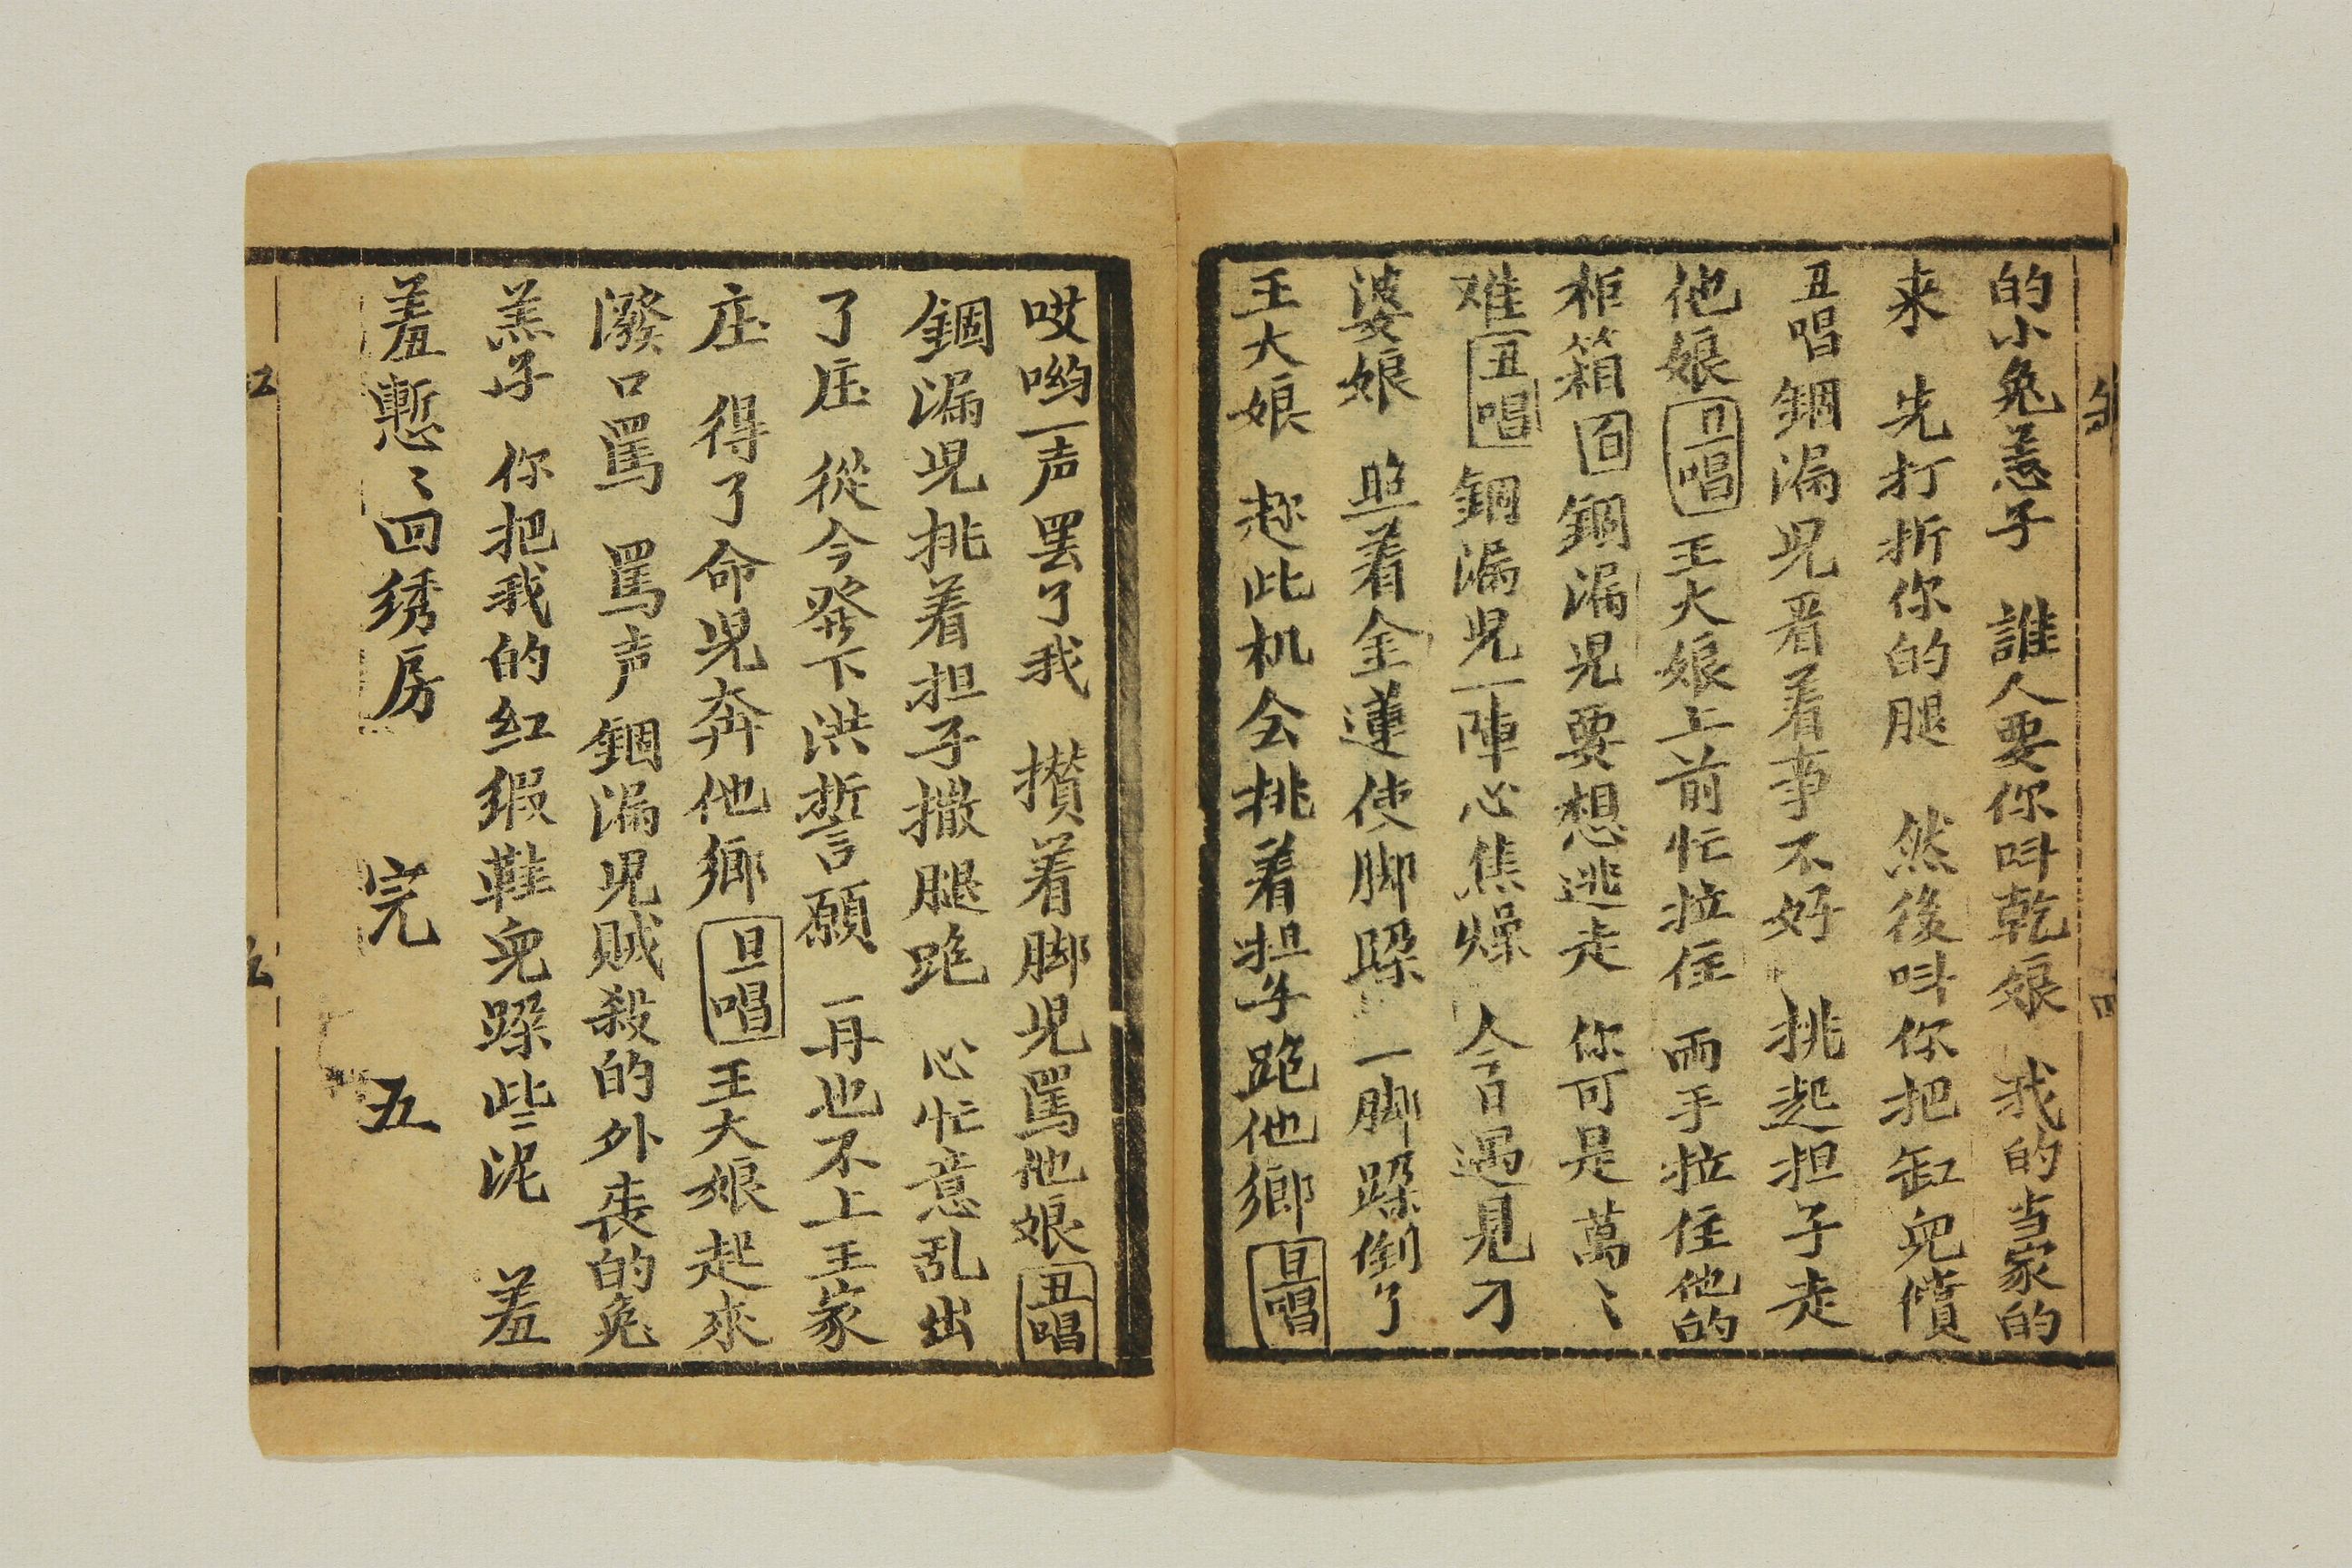 的小兔羔子　誰人要你呌乾娘　我的当家的
来　先打折你的腿　然後呌你把缸兒償
丑唱錮漏児看着事不好　挑起担子走
他娘旦唱王大娘上前忙拉住　両手拉住他的
柜箱回錮漏児要想逃走　你可是萬〻
难丑唱錮漏児一陣心焦燥　今日遇見刁
婆娘　照着金蓮使脚跺　一脚跺倒了
王大娘　趂此机会挑着担子跑他鄉旦唱
哎喲一声罢了我　攅着脚児罵他娘丑唱
錮漏児挑着担子撒腿跑　心忙意乱出
了庄　從今發下洪誓願　再也不上王家
庄　得了命児奔他鄉旦唱王大娘起來
潑口罵　罵声錮漏児贼殺的外丧的兔
羔子　你把我的红缎鞋兒跺些泥　羞
羞慙〻回绣房　完　五